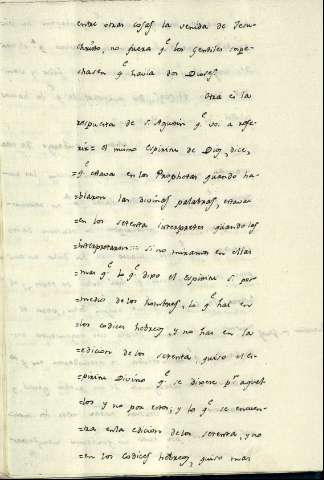 entre otras cosas la venida de Jesu-
christo, no fuera q.^e los gentiles sope-
chasen q.^e havia dos Dioses.
Otra es la
respuesta de S. Agustin q.^e voi a refe-
rir = el mismo espiritu de Dios, dice,
=q.^e estava en los Prophetas quando ha-
=blaron las divinas palabras, estava
=en los setenta interpretes quando las
=interpretaron = si no miramos en ellas
=mas q.^e lo q.^e dixo el espiritu S. por
=medio de los hombres, lo q.^e hai en
=los codices hebreos, y no hai en la
=edicion de los setenta, quiso el es-
=piritu Divino q.^e se dixera p.^r aquel-
=los y no por estos; y lo q.^e se encuen-
=tra en la edicion de los setenta, y no
=en los codices hebreos, quiso mas